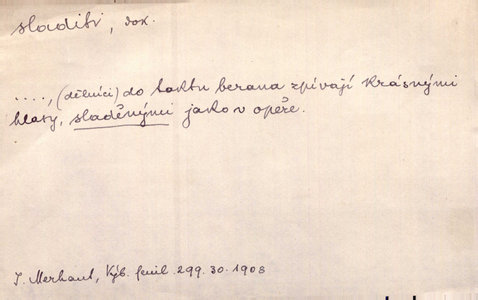 sladiti, dok.
...., (dělníci) do taktu berana zpívají krásnými
hlasy, sladěnými jako v opeře.
J. Merhaut, Výb. feuil. 299. 30. 1908